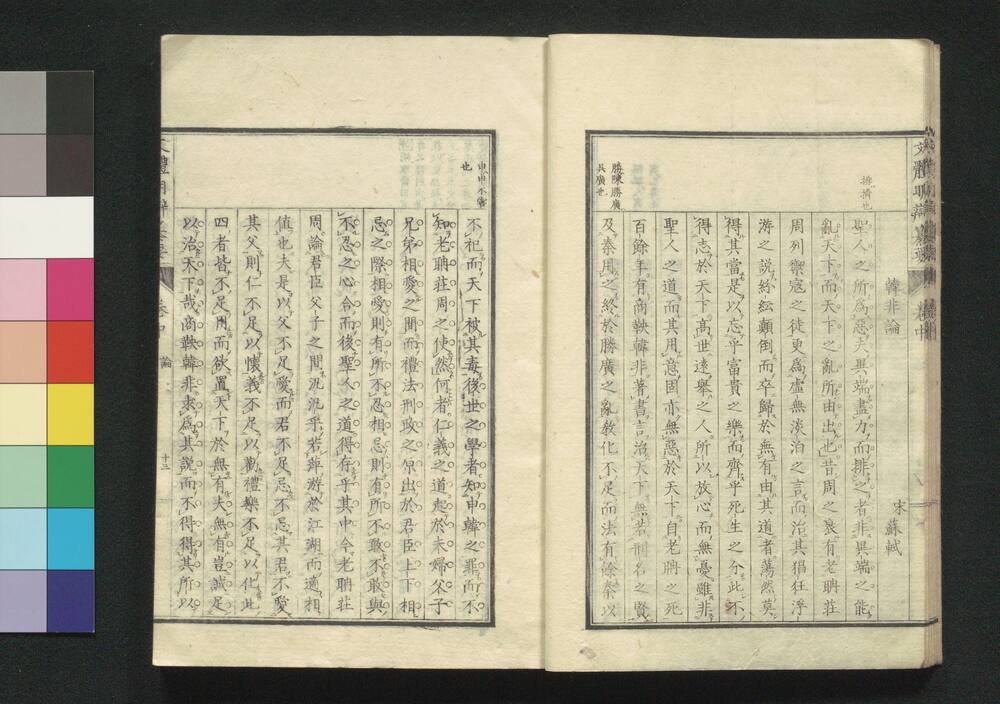 韓非論
宋蘇軾
排擠也
聖人之所爲惡夫異端盡力而排之者非異端之能
亂天下而天下之亂所由出也昔周之衰有老聃莊
周列禦寇之徒更爲虛無淡泊之言而治其猖狂浮
游之說紛紜顛倒而卒歸於無有由其道者蕩然莫
得其當是以忘乎富貴之樂而齊乎死生之分此不
得志於天下高世遠舉之人所以放心而無憂雖非
聖人之道而其用意固亦無惡於天下自老聃之死
百餘年有商鞅韓非著書言治天下無若刑名之賢
勝陳勝廣
吳廣也
及秦用之終於勝廣之亂敎化不足而法有餘秦以
也
不祀而天下被其毒後世之學者知申韓之罪而不
知老聃莊周之使然何者仁義之道起於夫婦父子
兄弟相愛之間而禮法刑政之原出於君臣上下相
忌之際相愛則有所不忍相忌則有所不敢不敢與
不忍之心合而後聖人之道得存乎其中今老聃莊
周論君臣父子之間汎汎乎若萍游於江湖而適相
值也夫是以父不足愛而君不足忌不忌其君不愛
其父則仁不足以懷義不足以勸禮樂不足以化此
四者皆不足用而欲置天下於無有夫無有豈誠足
以治天下哉商鞅韓非求爲其說而不得得其所以
論
十三